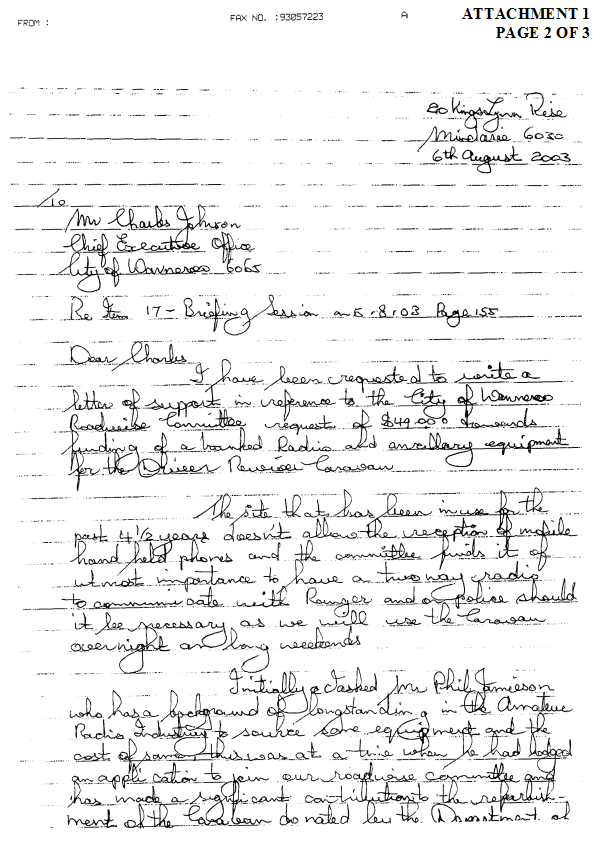 FROM :
FAX NO. :93057223
A
ATTACHMENT 1
PAGE 2 OF 3
20 Kingslynn Rise
Mindarie 6030
6th August 2003
To
Mr Charles Johnson
Chief Executive Office
City of Wanneroo 6065
Re Item 17 - Briefing Session on 5.8.03 Page 155
Dear Charles
I have been requested to write a
letter of support in reference to the City of Wanneroo
Roadwise Committee request of towards
funding of a trunked Radio and ancillary equipment
for the Driver Reviver Caravan
The site that has been in use for the
past 4 1/2 years doesn't allow the reception of mobile
hand held phones and the committee finds it of
utmost importance to have a two way radio
to communicate with Ranger and or police should
it be necessary as we will use the Caravan
overnight on long weekends
Initially I asked Mr Phil Jamieson
who has a background of longstanding in the Amateur
Radio Industry to source some equipment and the
cost of same, this was at a time when he had lodged
an application to join our roadwise committee and
has made a significant contribution to the refurbish-
ment of the Caravan donated by the Department of